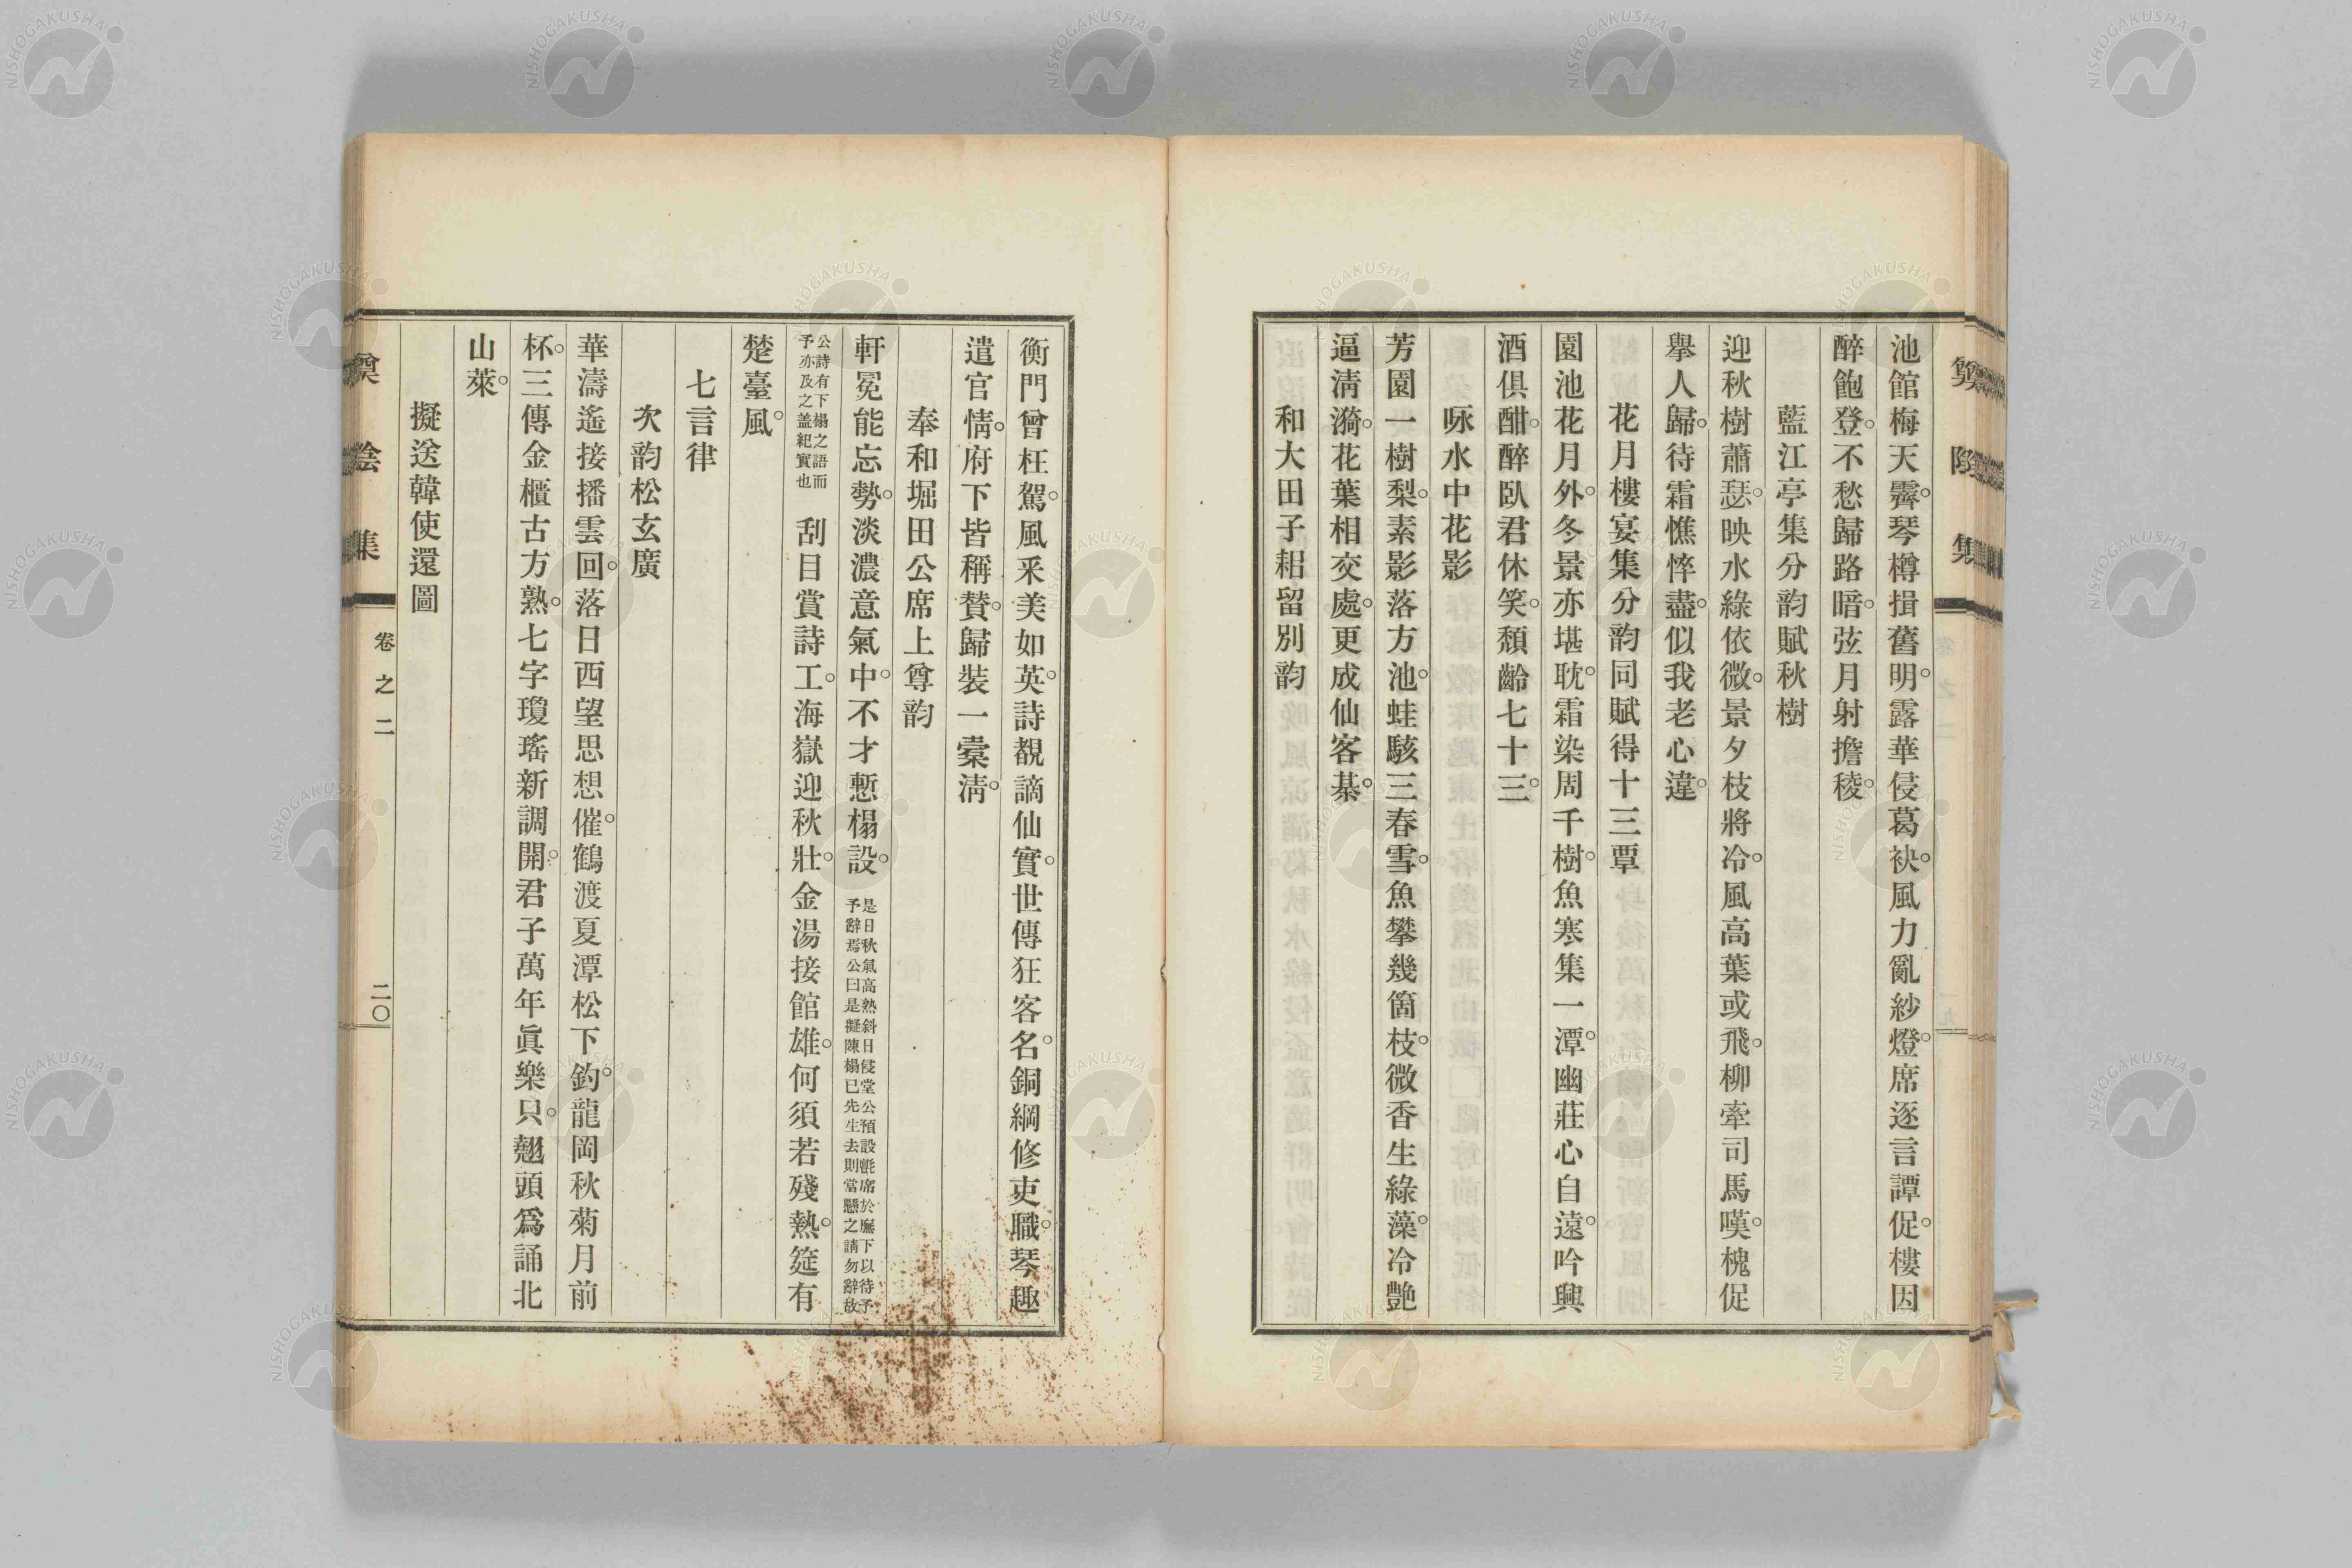 池館梅天霽。琴樽揖舊明。露華侵葛袂。風力亂紗燈。席逐言譚促。樓因
醉飽登。不愁歸路暗。弦月射擔稜。
藍江亭集分韵賦秋樹
迎秋樹蕭瑟。映水綠依微。景夕枝將冷。風高葉或飛。柳牽司馬嘆。槐促
擧人歸。待霜憔悴盡。似我老心違。
花月樓宴集分韵同賦得十三覃
園池花月外。冬景亦堪耽。霜染周千樹。魚寒集一潭。幽莊心自遠。吟興
酒俱酣。醉臥君休笑。頽齡七十三。
咏水中花影
芳園一樹梨。素影落方池。蛙駭三春雪。魚攀幾箇枝。微香生綠藻。冷艷
逼淸漪。花葉相交處。更成仙客棊。
和大田子耜留別韵
衡門曾枉駕。風采美如英。詩覩謫仙實。世傳狂客名。銅綱修吏職。琴趣
遣官情。府下皆稱賛。歸裝一槖淸。
奉和堀田公席上尊韵
軒冕能忘勢。淡濃意氣中。不才慙榻設。是日秋氣高熟斜日侵堂公預設氈席於廡下以待予
予辭焉公曰是擬陳榻已先生去則當懸之請勿辭故
公詩有下榻之語而
予亦及之盖紀實也 刮目賞詩工。海嶽迎秋壯。金湯接館雄。何須若殘熱。筵有
楚臺風。
七言律
次韵松玄廣
華濤遙接播雲回。落日西望思想催。鶴渡夏潭松下釣。龍岡秋菊月前
杯。三傳金櫃古方熟。七字瓊瑤新調開。君子萬年眞樂只。翹頭爲誦北
山萊。
擬送韓使還圖
卷之二
二〇